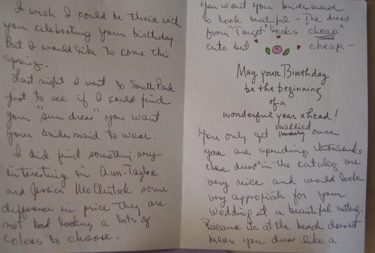 I wish I could be there with
you celebrating your birthday.
But I would like to come this
spring.
Last night I went to South Park
just to see if I could find
your "sun dress" you want
your bridemaid to wear.
I did find something very
interesting in Ann-Taylor
and Jessica McClintok some
difference in price they are
not bad looking a lots of
colors to choose.
you want your bridemaid
to look beautiful - The dress
from "Target" looks cheap
cute but cheap -
May your Birthday
be the beginning
of a
wonderful year ahead!
You only get married once
you are spending thousands
dress in the catalog are
very nice and would look
very appropiate for your
wedding at a beautiful setting.
Because is at the beach doesnt
mean you dress like a